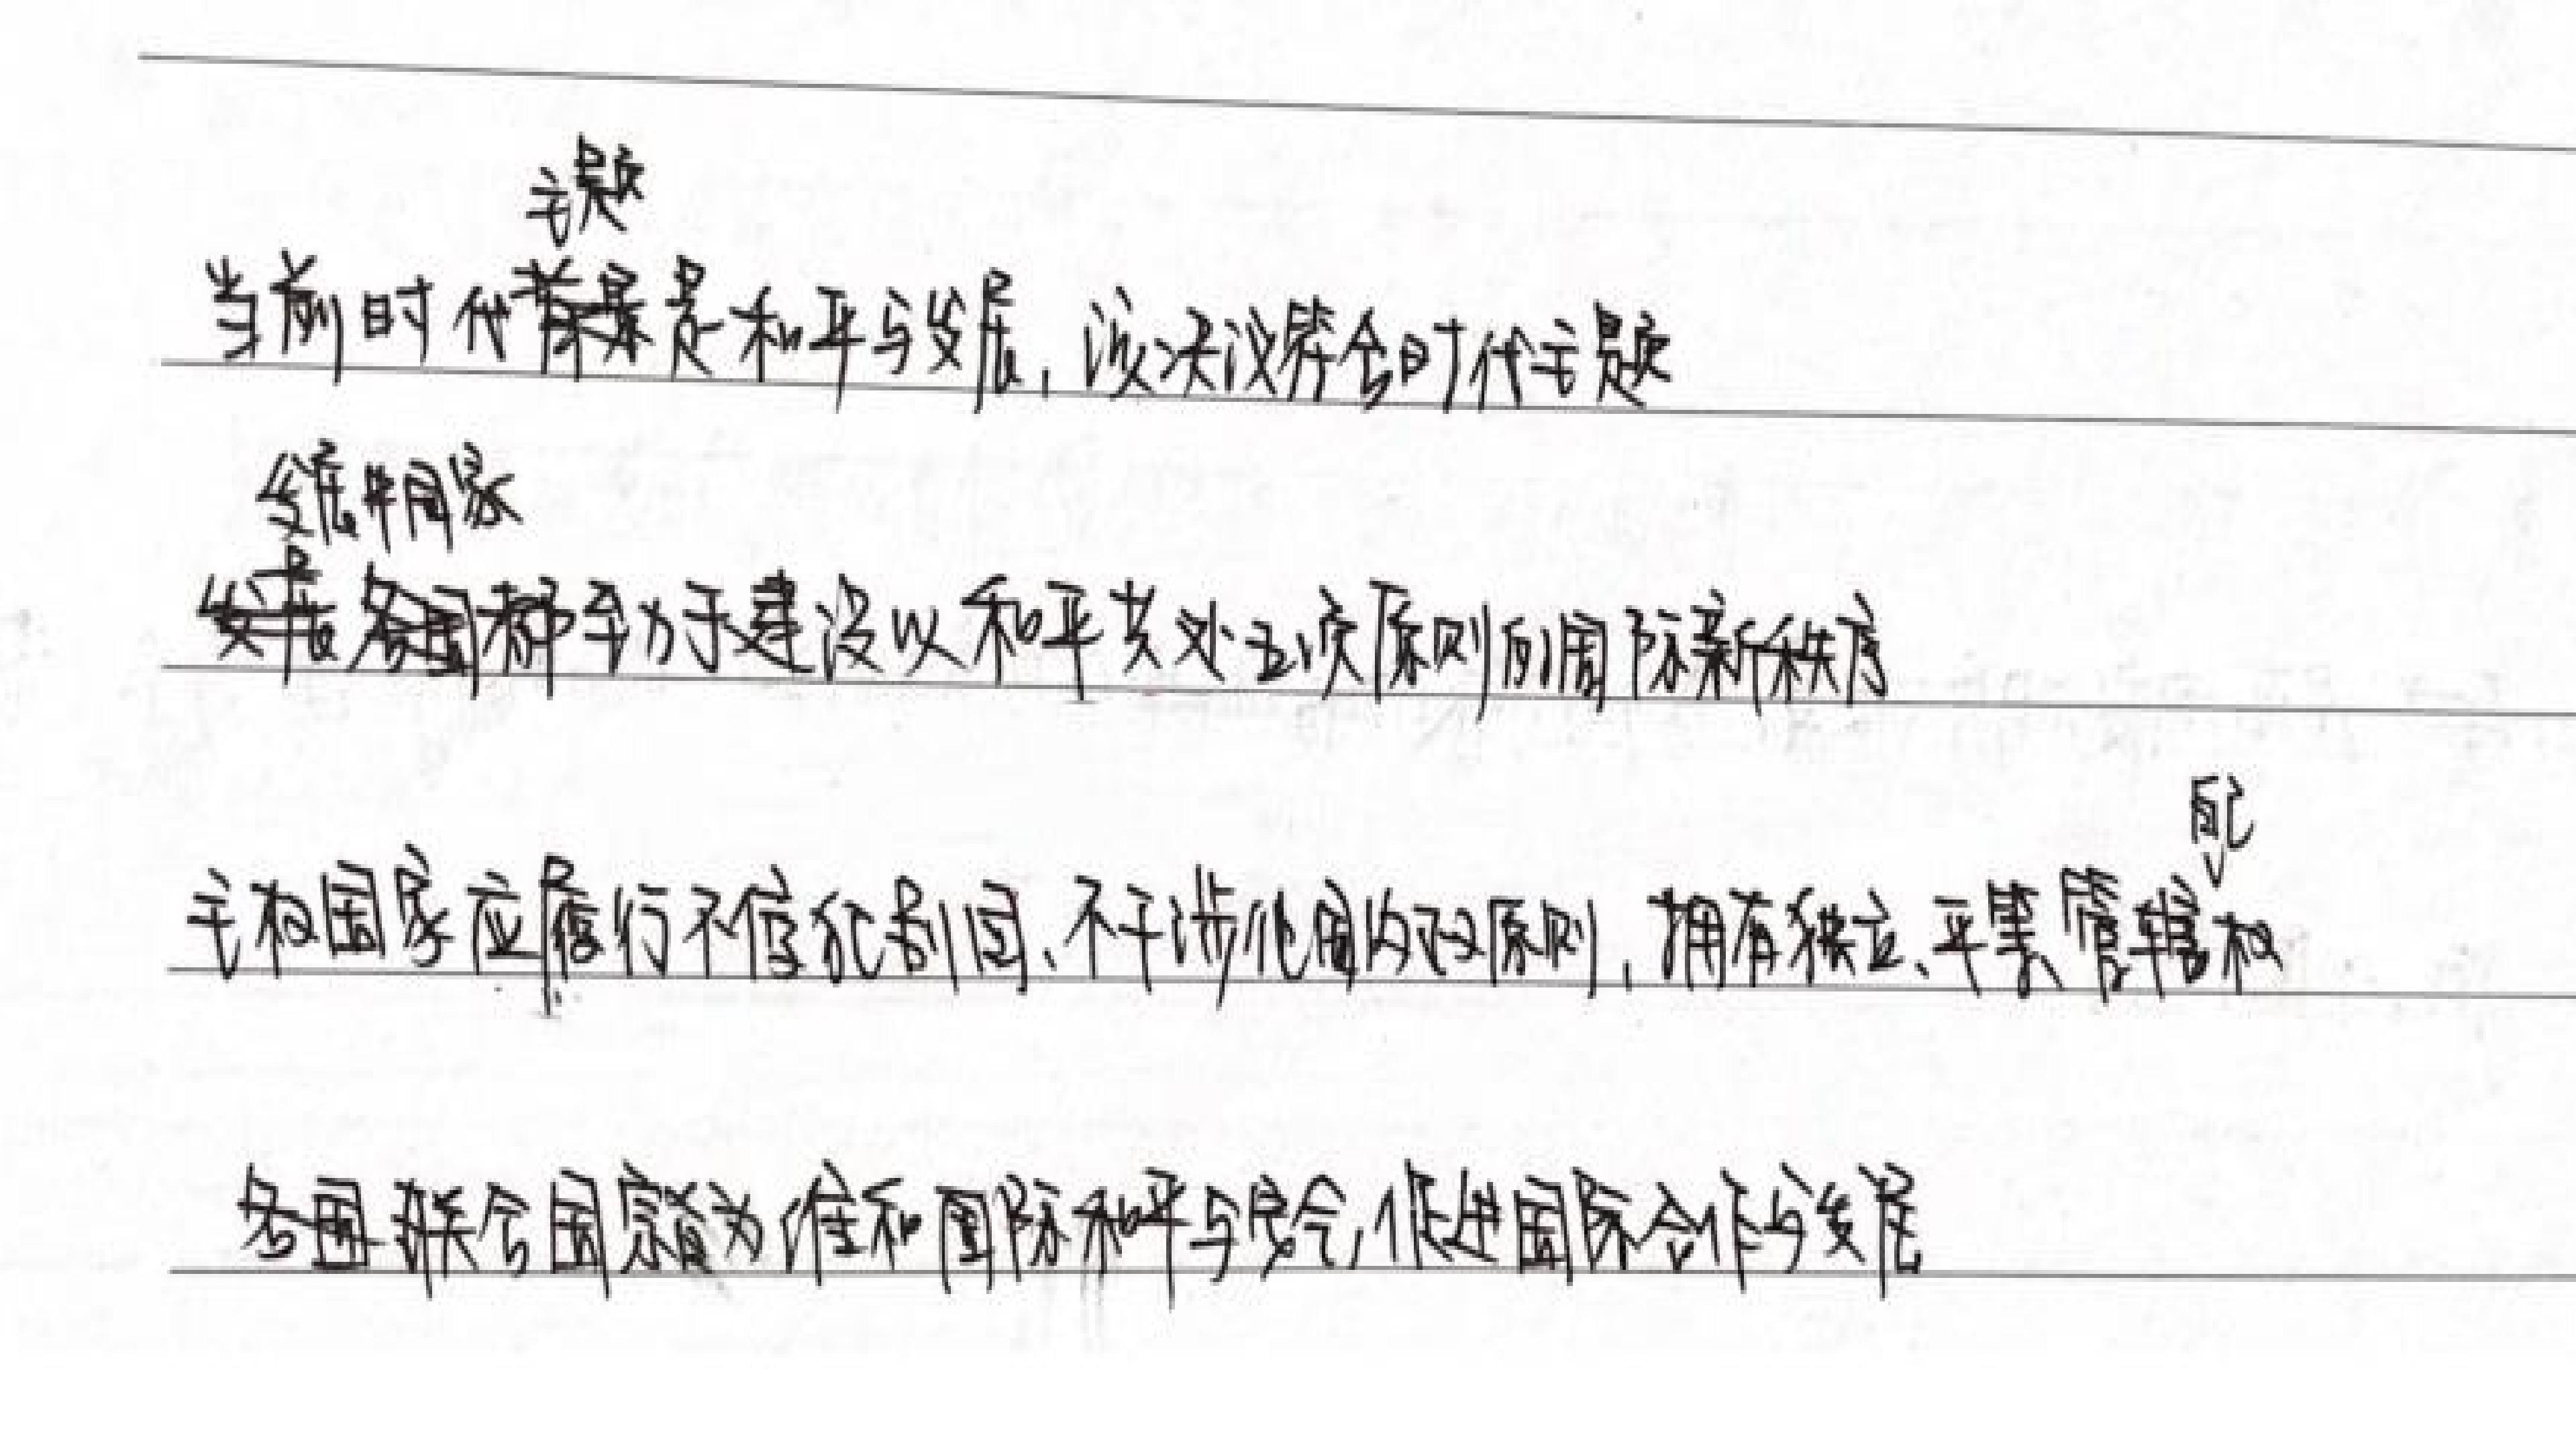 主题
当前时代背景是和平与发展,该决议符合时代主题
发展中国家
发展各国都致力于建设以和平共处五项原则的国际新秩序
配
主权国家应履行不侵犯别国、不干涉他国内政原则,拥有独立、平等管辖权
各国联合国家首为维和国际和平与安全,促进国际合作与发展